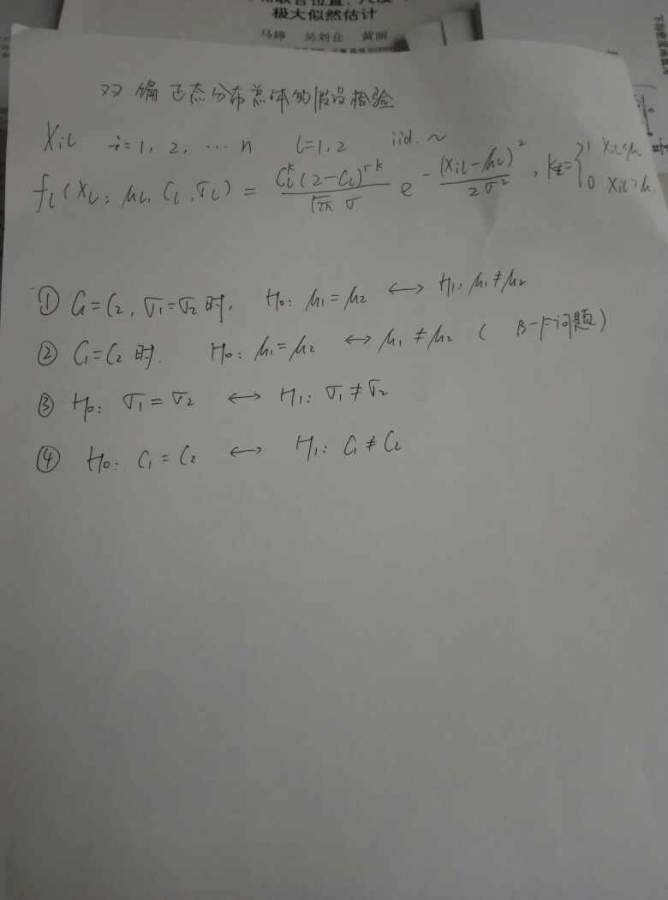 极大似然估计
马婷 吴刘仓 黄丽
双偏正态分布总体的假设检验
Xil i=1, 2, … n l=1,2 iid. ~
fl(Xl; μl, Cl, σl) = Cl^k (2-Cl)^{1-k} / (√2π σ) e^{-(Xil-μl)^2 / 2σ^2}, k = {1 Xil<μ
0 Xil>μ.
① C1=C2, σ1=σ2 时, H0: μ1=μ2 ⟷ H1: μ1≠μ2
② C1=C2 时. H0: μ1=μ2 ⟷ μ1≠μ2 ( B-F问题)
③ H0: σ1=σ2 ⟷ H1: σ1≠σ2
④ H0: C1=C2 ⟷ H1: C1≠C2